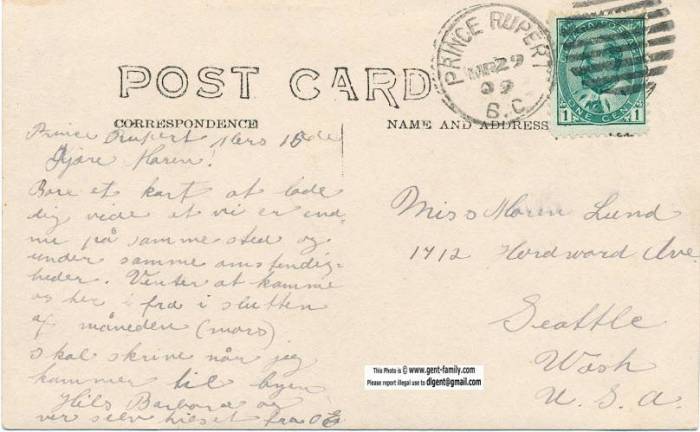 POST CARD
CORRESPONDENCE
NAME AND ADDRESS
PRINCE RUPERT
MR 29
09
B.C.
1 ONE CENT 1
Prince Rupert Mers 16de
Kjære Maren!
Bare et kart at lade
dig vide at vi er end
nu på samme sted og
under samme omstendig-
heder. Venter at komme
os her i fra i slutten
af måneden (mars)
skal skrive når jeg
kommer til byen
Hils Barbara og
ver selv hilset fra OE
Miss Maren Lund
1712 Ave
Seattle
Wash
U.S.A.
This Photo is © www.gent-family.com
Please report illegal use to dlgent@gmail.com